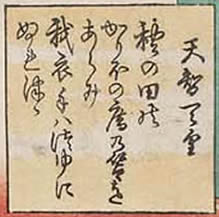 天智天皇
秋の田の
かりほの庵の苫を
あらみ
我衣手はつゆに
ぬれつゝ